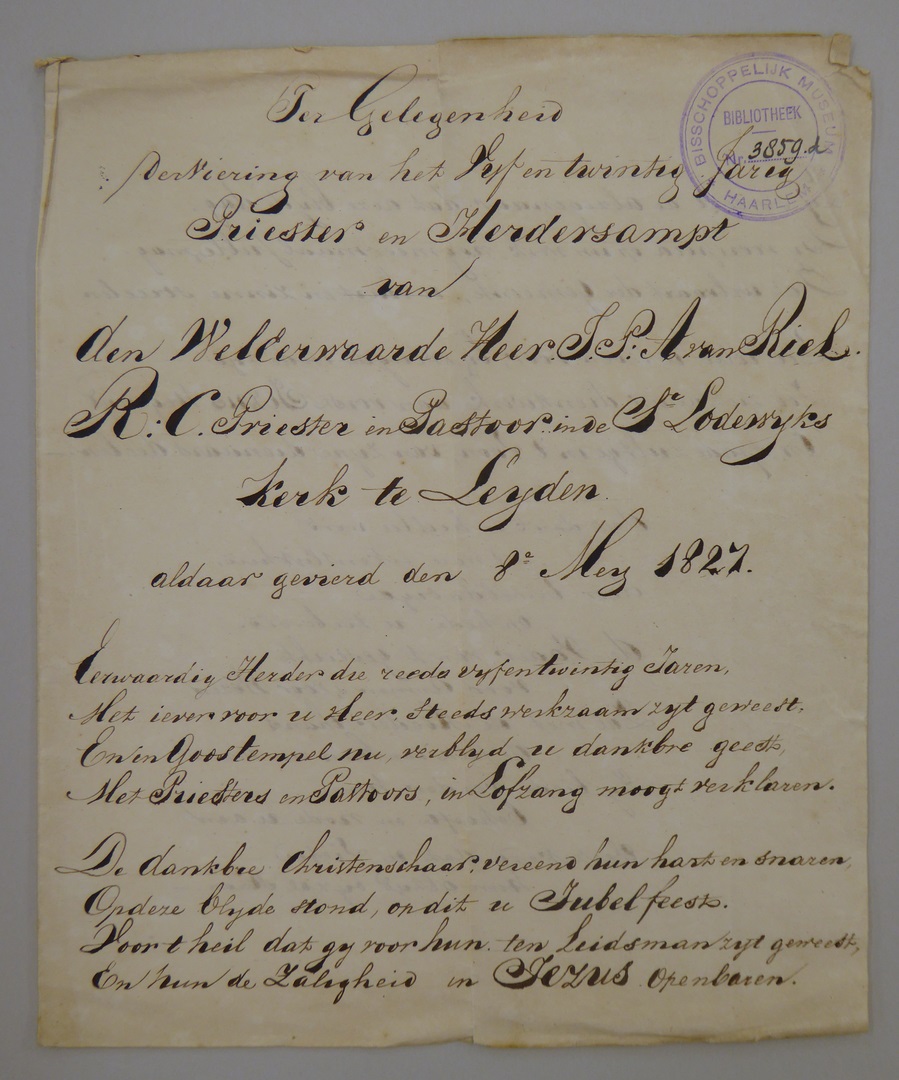 BISSCHOPPELIJK MUSEUM
BIBLIOTHEEK
Nr. 3859.d
HAARLEM
Ter Gelegenheid
Der Viering van het Vyf en twintig Jarig
Priester en Herdersampt
van
den WelEerwaarde Heer. J. P: A van Riel.
R: C. Priester en Pastoor in de St Lodewyks
Kerk te Leyden.
aldaar gevierd den 8e Mey 1827.
Eerwaardig Herder die reeds vyfentwintig Jaren,
Met iever voor u Heer. Steeds werkzaam zyt geweest,
En in Goostempel nu, verblyd u dankbre geest,
Met Priesters en Pastoors, in Lofzang moogt verklaren.
De dankbre Christenschaar, vereend hun hart en snaren,
Op deze blyde stond, op dit u Jubelfeest.
Voor t heil dat gy voor hun. ten Leidsman zyt geweest,
En hun de Zaligheid in Jezus Openbaren.